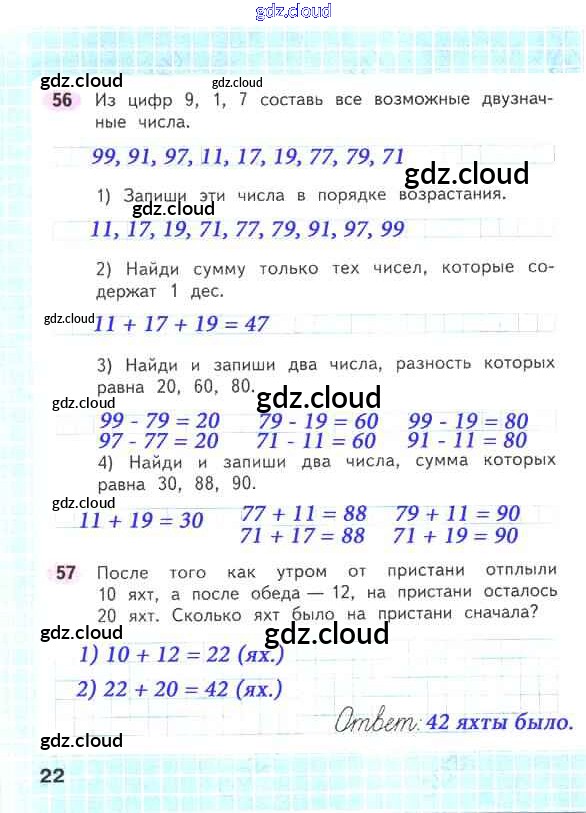 gdz.cloud
gdz.cloud gdz.cloud
56 Из цифр 9, 1, 7 составь все возможные двузнач-
ные числа.
99, 91, 97, 11, 17, 19, 77, 79, 71
gdz.cloud
1) Запиши эти числа в порядке возрастания.
gdz.cloud
11, 17, 19, 71, 77, 79, 91, 97, 99
2) Найди сумму только тех чисел, которые со-
держат 1 дес.
gdz.cloud
11 + 17 + 19 = 47
3) Найди и запиши два числа, разность которых
равна 20, 60, 80.
gdz.cloud gdz.cloud
99 - 79 = 20 79 - 19 = 60 99 - 19 = 80
97 - 77 = 20 71 - 11 = 60 91 - 11 = 80
4) Найди и запиши два числа, сумма которых
равна 30, 88, 90.
gdz.cloud
11 + 19 = 30 77 + 11 = 88 79 + 11 = 90
71 + 17 = 88 71 + 19 = 90
57 После того как утром от пристани отплыли
10 яхт, а после обеда — 12, на пристани осталось
20 яхт. Сколько яхт было на пристани сначала?
gdz.cloud gdz.cloud
1) 10 + 12 = 22 (ях.)
2) 22 + 20 = 42 (ях.)
Ответ: 42 яхты было.
gdz.cloud
22